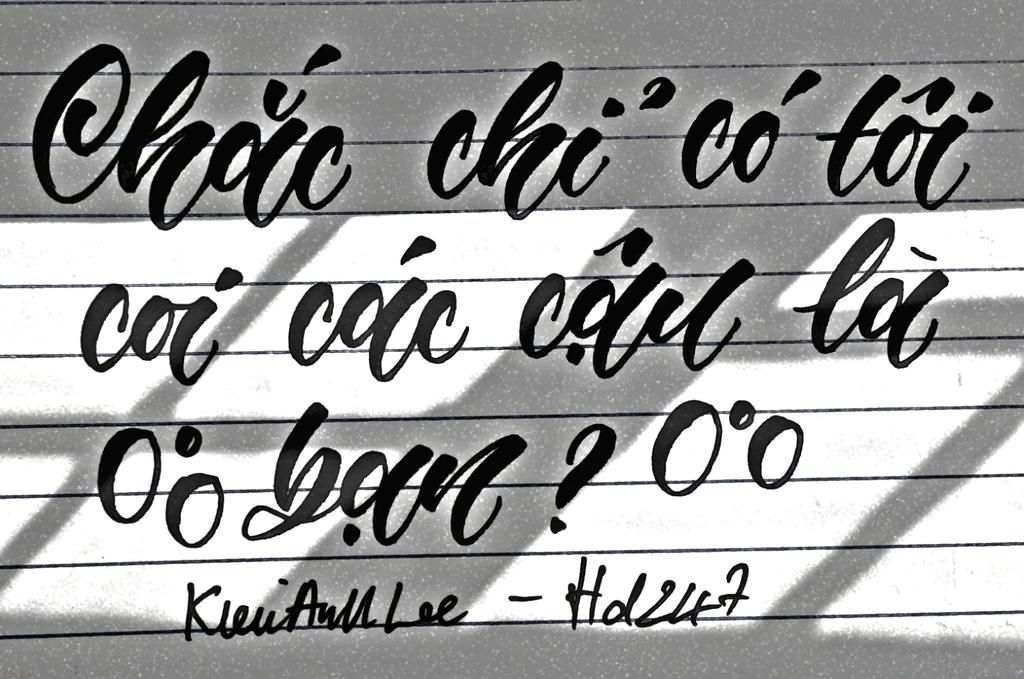 Chắc chỉ có tôi
coi các cậu là
bạn?
KieuAnhLee - Hd247